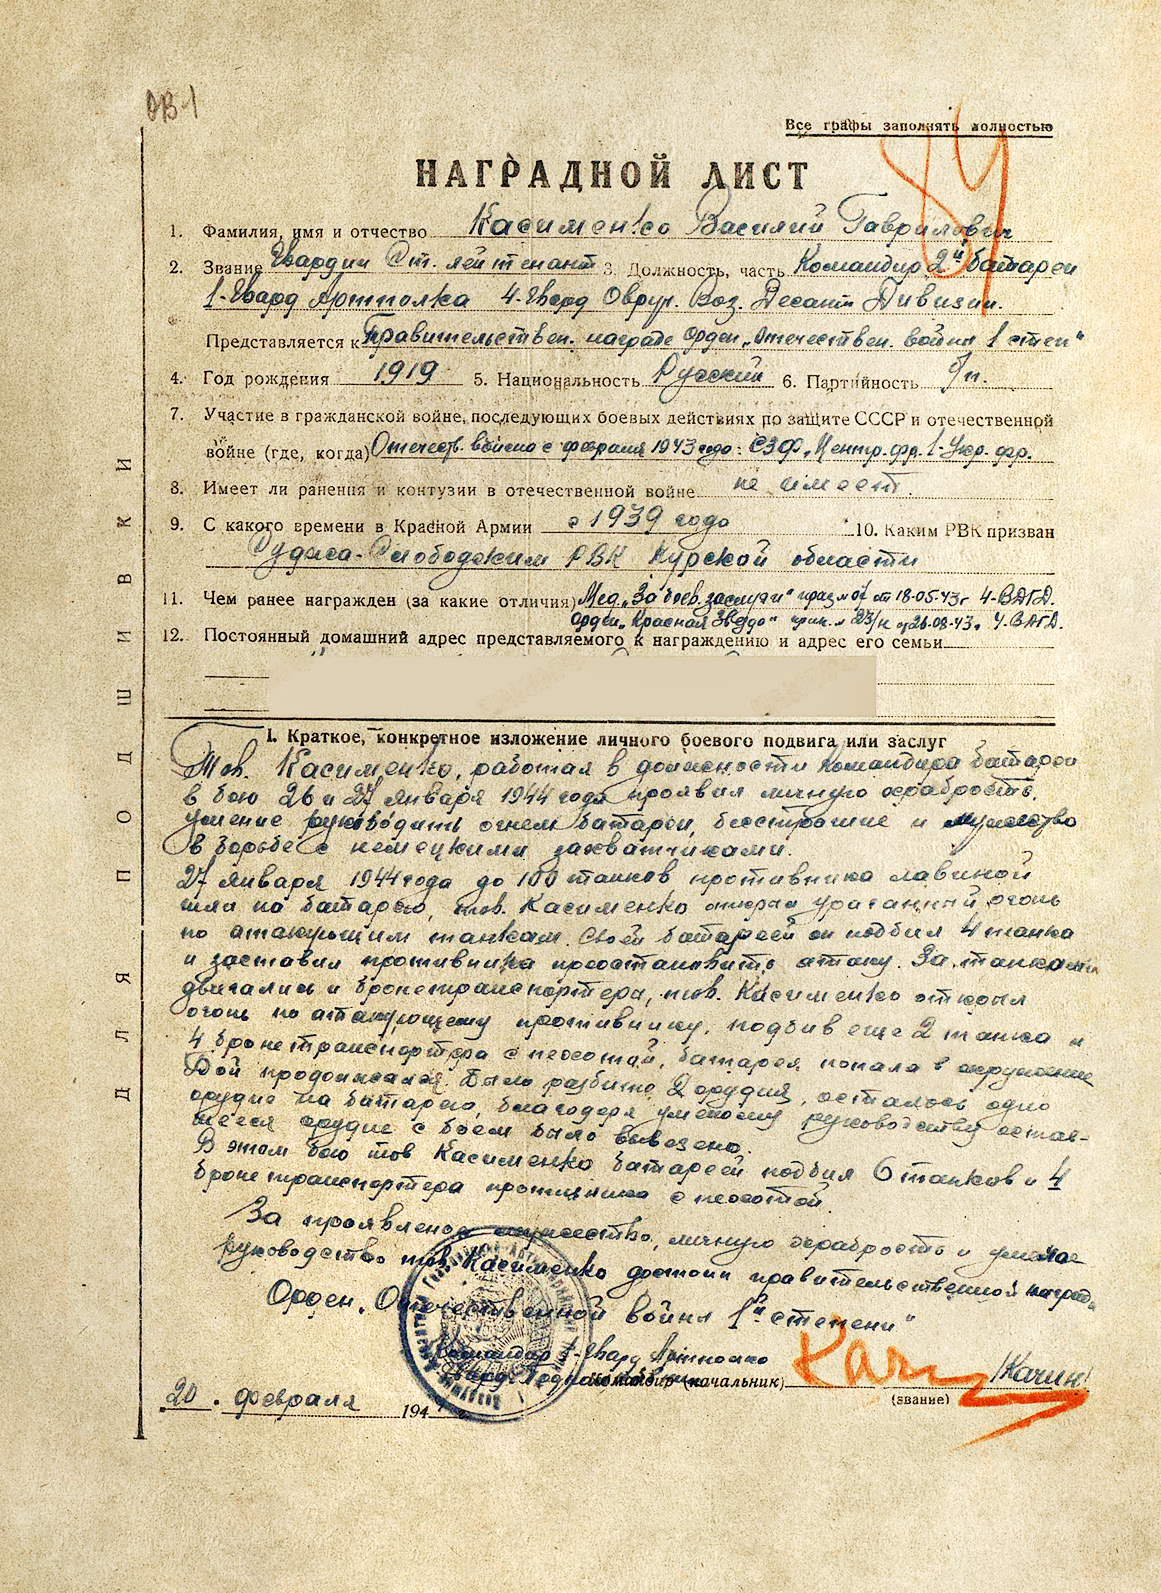 ОВ-1
Все графы заполнять полностью
НАГРАДНОЙ ЛИСТ
1. Фамилия, имя и отчество Касименко Василий Гаврилович
2. Звание Гвардии Ст. лейтенант 3. Должность, часть Командир 2й батареи
1-Гвард Артполка 4-Гвард Овруч. Воз. Десант Дивизии.
Представляется к Правительствен. награде Орден „Отечествен. война 1 степ"
4. Год рождения 1919 5. Национальность Русский 6. Партийность б/п.
7. Участие в гражданской войне, последующих боевых действиях по защите СССР и отечественной
войне (где, когда) Отечеств. война с февраля 1943 года: СЗФ, Центр. фр. 1-Укр. фр.
8. Имеет ли ранения и контузии в отечественной войне не имеет.
9. С какого времени в Красной Армии с 1939 года 10. Каким РВК призван
Суджа-Слободским РВК Курской области
11. Чем ранее награжден (за какие отличия) Мед. „За боев. заслуги" приказ от 18-05-43г 4-ВДГД.
Орден „Красная Звезда" прик. 23/н от 26-08-43г 4. ВДГД.
12. Постоянный домашний адрес представляемого к награждению и адрес его семьи
ДЛЯ ПОДШИВКИ
I. Краткое, конкретное изложение личного боевого подвига или заслуг
Тов. Касименко, работая в должности командира батареи
в бою 26 и 27 января 1944 года проявил личную храбрость,
умение руководить огнем батареи, бесстрашие и мужество
в борьбе с немецкими захватчиками.
27 января 1944 года до 100 танков противника лавиной
шли на батарею, тов. Касименко открыл ураганный огонь
по атакующим танкам. Своей батареей он подбил 4 танка
и заставил противника приостановить атаку. За танками
двигались и бронетранспортера, тов. Касименко открыл
огонь по атакующему противнику, подбив еще 2 танка и
4 бронетранспортера с пехотой, батарея попала в окружение
Бой продолжался. Было разбито 2 орудия, осталось одно
орудие на батарею, благодаря умелому руководству остав-
шееся орудие с боем было вывезено.
В этом бою тов Касименко батареей подбил 6 танков и 4
бронетранспортера противника с пехотой.
За проявленое мужество, личную храбрость и умелое
руководство тов. Касименко достоин правительственной награды
Орден „Отечественной война 1й степени"
Командир 1-Гвард Артполка
Гвард. Командир (начальник) Качин /Качин/
(звание)
20. февраля 194